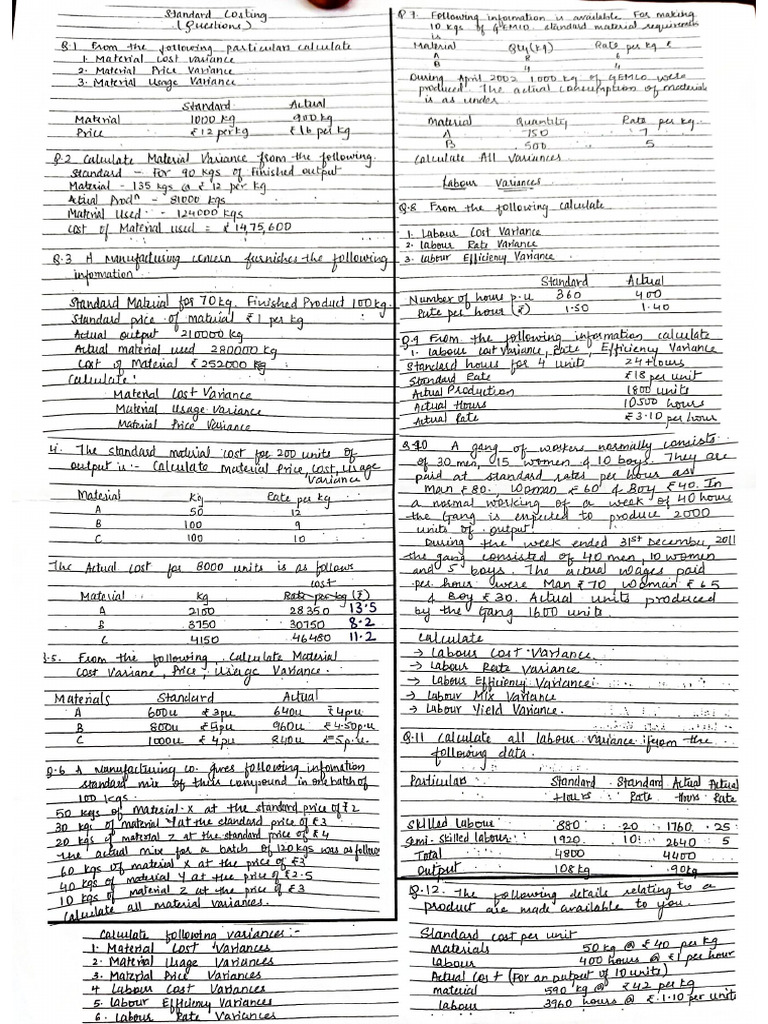 Standard Costing
(Questions)
Q.1 From the following particulars calculate
1. Material Cost Variance
2. Material Price Variance
3. Material Usage Variance
Standard Actual
Material 1000 kg 900 kg
Price ₹12 per kg ₹16 per kg
Q.2 Calculate Material Variance from the following.
Standard - For 90 kgs of Finished output
Material - 135 kgs @ ₹ 12 per kg
Actual Prodⁿ - 81000 kgs
Material Used - 124000 kgs
Cost of Material used = ₹ 14,75,600
Q.3 A Manufacturing concern furnishes the following
information
Standard Material for 70kg. Finished Product 100 kg.
Standard price of material ₹1 per kg
Actual output 210000 kg
Actual material used 280000 kg
Cost of Material ₹ 252000
Calculate:
Material Cost Variance
Material Usage Variance
Material Price Variance
4. The standard material cost for 200 units of
output is :- Calculate material Price, Cost, Usage
Variance
Material Kg Rate per kg
A 50 12
B 100 9
C 100 10
The Actual cost for 8000 units is as follows
Cost
Material Kg Rate per kg (₹)
A 2100 28350 13.5
B 3750 30750 8.2
C 4150 46480 11.2
Q.5. From the following, Calculate Material
Cost Variane, Price, Usage Variance.
Materials Standard Actual
A 600u ₹3pu 640u ₹4pu
B 800u ₹5pu 960u ₹4.50p.u
C 1000u ₹4pu 840u ₹5p.u.
Q.6 A Manufacturing Co. gives following infomation
standard mix of their compound in one batch of
100 kgs.
50 kgs of material X at the standard price of ₹2
30 kgs of material Y at the standard price of ₹3
20 kgs of material Z at the standard price of ₹4
The actual mix for a batch of 120kgs was as follows
60 kgs of material X at the price of ₹3
40 kgs of material Y at the price of ₹2.5
10 kgs of material Z at the price of ₹3
Calculate all material variances.
Calculate following variances :-
1. Material Cost Variances
2. Material Usage Variances
3. Material Price Variances
4 Labour Cost Variances
5. Labour Efficiency Variances
6. Labour Rate Variances
Q.7 Following information is available For making
10 kgs of GEMIO. standard material requirement
is
Material Qty(kg) Rate per kg ₹
A 8 6
B 4 4
During April 2002 1000 kg of GEMCO were
produced The actual consumption of material
is as under
Material Quantity Rate per kg.
A 750 7
B 500 5
Calculate All Variances
Labour Variances
Q.8 From the following calculate
1. Labour Cost Variance
2. Labour Rate Variance
3. Labour Efficiency Variance
Standard Actual
Number of hours p.u 360 400
Rate per hour (₹) 1.50 1.40
Q.9 From the following information calculate
1. Labour Cost Variance, Rate, Efficiency Variance
Standard hours for 4 units 24 Hours
Standard Rate ₹18 per unit
Actual Production 1800 units
Actual Hours 10500 hours
Actual Rate ₹3.10 per hour
Q.10 A gang of workers normally consists
of 30 men, 15 women & 10 boys. They are
paid at standard rates per hour as:
Man ₹80, Woman ₹60 & Boy ₹40. In
a normal working of a week of 40 hours
the Gang is expected to produce 2000
units of output.
During the week ended 31st December, 2011
the gang consisted of 40 men, 10 women
and 5 boys. The actual wages paid
per hour were Man ₹70, woman ₹65
& Boy ₹30. Actual units produced
by the Gang 1600 units.
Calculate
→ Labour Cost Variance
→ Labour Rate Variance
→ Labour Efficiency Variance
→ Labour Mix Variance
→ Labour Yield Variance.
Q.11 Calculate all labour variance from the
following data.
Particulars Standard Standard Actual Actual
Hours Rate Hours Rate
Skilled Labour 880 20 1760 25
Semi-Skilled Labour 1920 10 2640 5
Total 4800 4400
Output 108kg 90kg
Q.12. The following details relating to a
product are made available to you.
Standard cost per unit
Materials 50kg @ ₹40 per kg
Labour 400 hours @ ₹1 per hour
Actual Cost (For an output of 10 units)
material 590 kg @ ₹42 per kg
labour 3960 hours @ ₹1.10 per unit